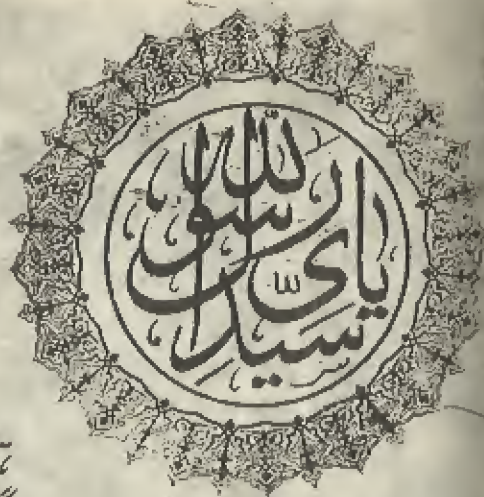 يا سيدى يا رسول الله